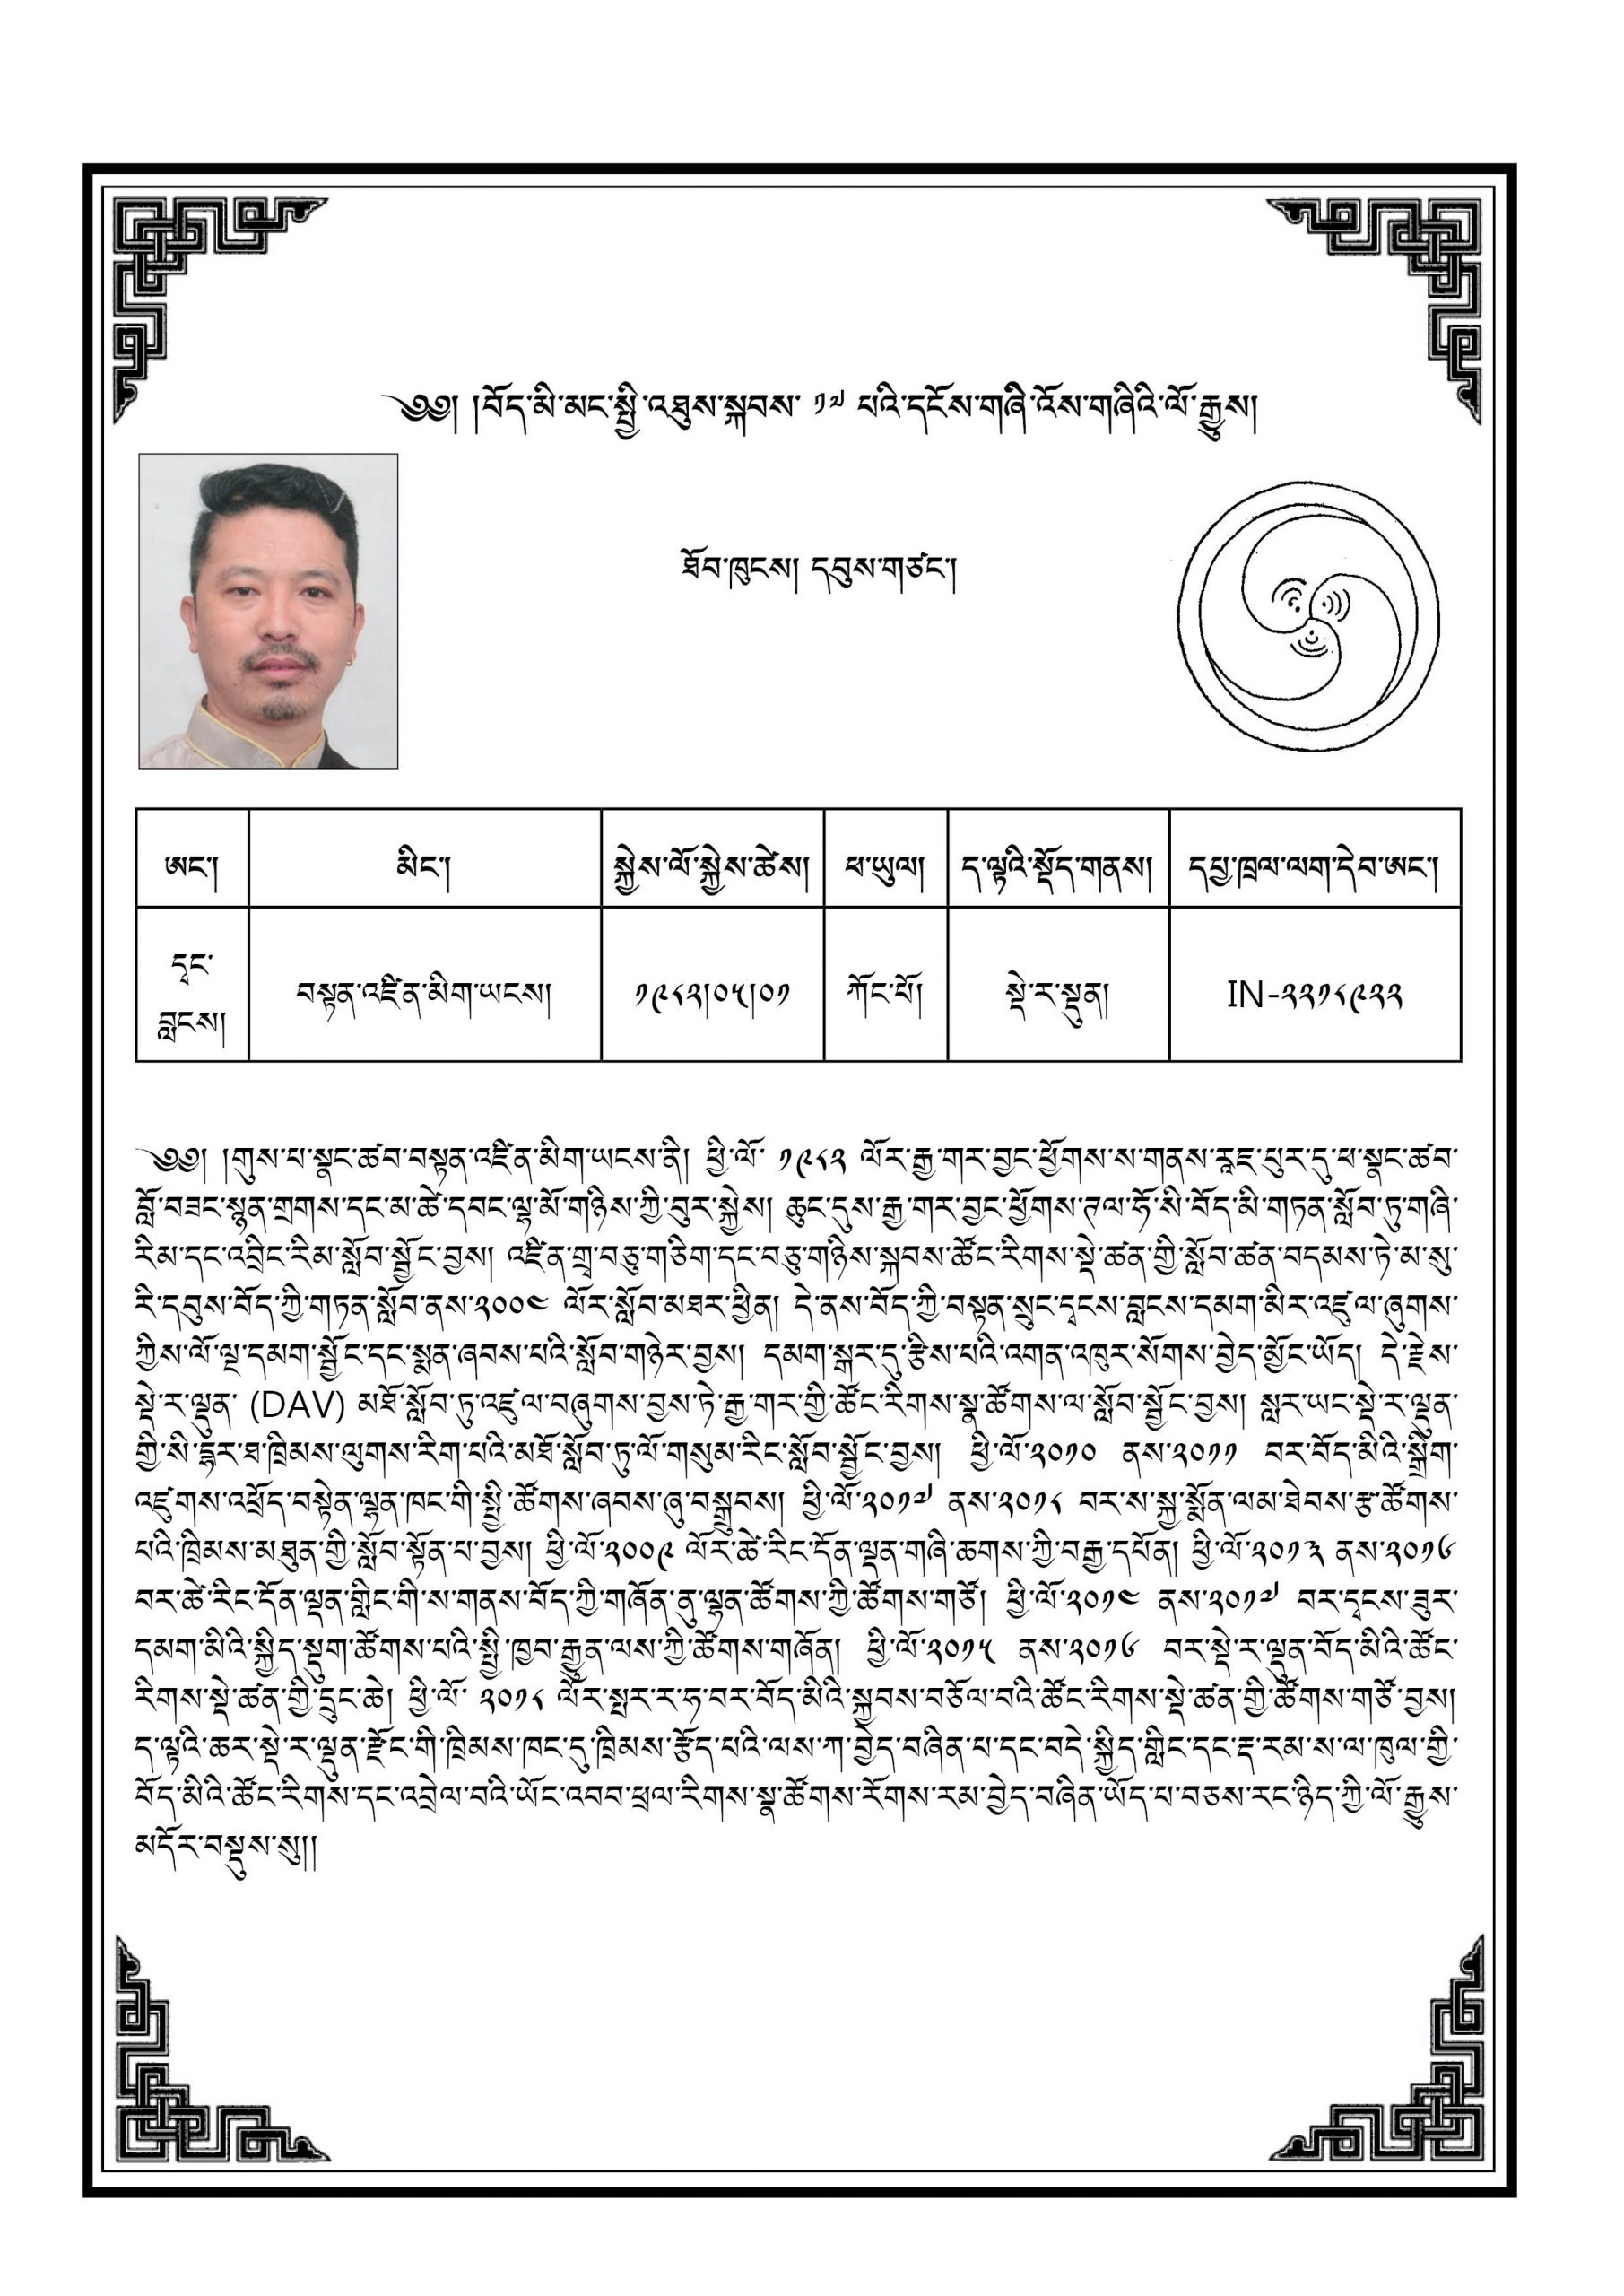 ༄༅། །བོད་མི་མང་སྤྱི་འཐུས་སྐབས་ ༡༧ པའི་དངོས་གཞི་འོས་གཞིའི་ལོ་རྒྱུས།
ཐོབ་ཁུངས། དབུས་གཙང་།
ཨང་། མིང་། སྐྱེས་ལོ་སྐྱེས་ཚེས། ཕ་ཡུལ། ད་ལྟའི་སྡོད་གནས། དཔྱ་ཁྲལ་ལག་དེབ་ཨང་།
དྭང་
བླངས། བསྟན་འཛིན་མིག་ཡངས། ༡༩༨༢།༠༥།༠༡ ཀོང་པོ། སྡེ་ར་སྡུན། IN-༢༢༡༨༩༢༢
༄༅། །གུས་པ་སྣང་ཚབ་བསྟན་འཛིན་མིག་ཡངས་ནི། ཕྱི་ལོ་ ༡༩༨༢ ལོར་རྒྱ་གར་བྱང་ཕྱོགས་ས་གནས་རཱཇ་པུར་དུ་ཕ་སྣང་ཚབ་
བློ་བཟང་སྙན་གྲགས་དང་མ་ཚེ་དབང་ལྷ་མོ་གཉིས་ཀྱི་བུར་སྐྱེས། ཆུང་དུས་རྒྱ་གར་བྱང་ཕྱོགས་ཌལ་ཧོ་སི་བོད་མི་གཏན་སློབ་ཏུ་གཞི་
རིམ་དང་འབྲིང་རིམ་སློབ་སྦྱོང་བྱས། འཛིན་གྲྭ་བཅུ་གཅིག་དང་བཅུ་གཉིས་སྐབས་ཚོང་རིགས་སྡེ་ཚན་གྱི་སློབ་ཚན་བདམས་ཏེ་མ་སུ་
རི་དབུས་བོད་ཀྱི་གཏན་སློབ་ནས་༢༠༠༤ ལོར་སློབ་མཐར་ཕྱིན། དེ་ནས་བོད་ཀྱི་བསྟན་སྲུང་དྭངས་བླངས་དམག་མིར་འཛུལ་ཞུགས་
ཀྱིས་ལོ་ལྔ་དམག་སྦྱོང་དང་སྨན་ཞབས་པའི་སློབ་གཉེར་བྱས། དམག་སྒར་དུ་རྩིས་པའི་འགན་འཁུར་སོགས་བྱེད་མྱོང་ཡོད། དེ་རྗེས་
སྡེ་ར་ལྡུན་ (DAV) མཐོ་སློབ་ཏུ་འཛུལ་བཞུགས་བྱས་ཏེ་རྒྱ་གར་གྱི་ཚོང་རིགས་སྣ་ཚོགས་ལ་སློབ་སྦྱོང་བྱས། སླར་ཡང་སྡེ་ར་ལྡུན་
གྱི་སི་དྷར་ཐ་ཁྲིམས་ལུགས་རིག་པའི་མཐོ་སློབ་ཏུ་ལོ་གསུམ་རིང་སློབ་སྦྱོང་བྱས། ཕྱི་ལོ་༢༠༡༠ ནས་༢༠༡༡ བར་བོད་མིའི་སྒྲིག་
འཛུགས་འཕྲོད་བསྟེན་ལྷན་ཁང་གི་སྤྱི་ཚོགས་ཞབས་ཞུ་བསྒྲུབས། ཕྱི་ལོ་༢༠༡༧ ནས་༢༠༡༨ བར་ས་སྐྱ་སྨོན་ལམ་ཐེབས་རྩ་ཚོགས་
པའི་ཁྲིམས་མཐུན་གྱི་སློབ་སྟོན་པ་བྱས། ཕྱི་ལོ་༢༠༠༩ ལོར་ཚེ་རིང་དོན་ལྡན་གཞི་ཆགས་ཀྱི་བརྒྱ་དཔོན། ཕྱི་ལོ་༢༠༡༣ ནས་༢༠༡༦
བར་ཚེ་རིང་དོན་ལྡན་གླིང་གི་ས་གནས་བོད་ཀྱི་གཞོན་ནུ་ལྷན་ཚོགས་ཀྱི་ཚོགས་གཙོ། ཕྱི་ལོ་༢༠༡༤ ནས་༢༠༡༧ བར་དྭངས་ཟུར་
དམག་མིའི་སྐྱིད་སྡུག་ཚོགས་པའི་སྤྱི་ཁྱབ་རྒྱུན་ལས་ཀྱི་ཚོགས་གཞོན། ཕྱི་ལོ་༢༠༡༥ ནས་༢༠༡༦ བར་སྡེ་ར་ལྡུན་བོད་མིའི་ཚོང་
རིགས་སྡེ་ཚན་གྱི་དྲུང་ཆེ། ཕྱི་ལོ་ ༢༠༡༨ ལོར་སྤར་ར་ཧ་བར་བོད་མིའི་སྐྱབས་བཅོལ་བའི་ཚོང་རིགས་སྡེ་ཚན་གྱི་ཚོགས་གཙོ་བྱས།
ད་ལྟའི་ཆར་སྡེ་ར་ལྡུན་རྫོང་གི་ཁྲིམས་ཁང་དུ་ཁྲིམས་རྩོད་པའི་ལས་ཀ་བྱེད་བཞིན་པ་དང་བདེ་སྐྱིད་གླིང་དང་རྡ་རམ་ས་ལ་ཁུལ་གྱི་
བོད་མིའི་ཚོང་རིགས་དང་འབྲེལ་བའི་ཡོང་འབབ་ཕྲལ་རིགས་སྣ་ཚོགས་རོགས་རམ་བྱེད་བཞིན་ཡོད་པ་བཅས་རང་ཉིད་ཀྱི་ལོ་རྒྱུས་
མདོར་བསྡུས་སུ།།